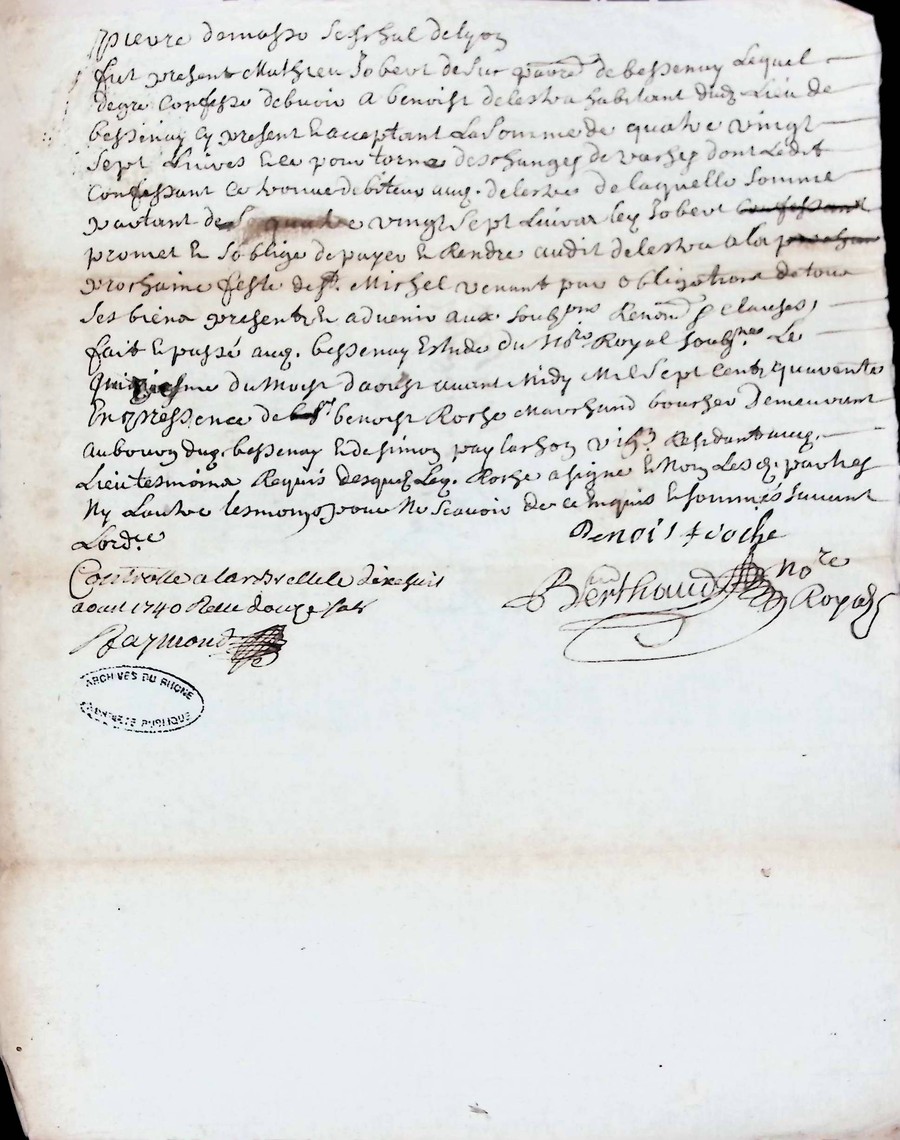 pierre demasso Seschal delyon
fut present Mathieu Jobert de Sur parroe. de bessenay Lequel
degre Confesse debvoir A benoist delestra habitant dudt. Lieu de
bessenay Cy present Et acceptant La Somme de quatre vingt
Sept Livres Et ce pour torne deschanges de vaches dont Ledt
Confessant Ce trouve debiteur auq. delestra de laquelle Somme
partant de quatre vingt Sept Livres Ley Jobert Confessant
promet Et Soblige de payer Et Rendre audit delestra a la prochaine
prochaine feste de St. Michel venant par obligations de tous
Ses biens presents Et advenir aux Soubmns Renons. & clauses,
fait Et passé auq. bessenay Estude du Nore. Royal Soubne. Le
quinziesme du Mois daoust avant Midy Mil Sept Cents quarente
En presence de Sr benoist Roche Marchand boucher Demeurant
au bourg duq. bessenay Et de Simon vign. Residant auq.
Lieu tesmoins Requis desquels Leq. Roche a signé Et Non Les d. parties
Ny Lautre tesmoing pour Ne Scavoir de ce Enquis Et Sommés Suivant
Lordce
Benoist roche
Controllé a larbrelle le dixhuit
aout 1740 Reçu douze sols
Raymond
Berthaud nore
Royal
ARCHIVES DU RHONE
PROPRIETE PUBLIQUE